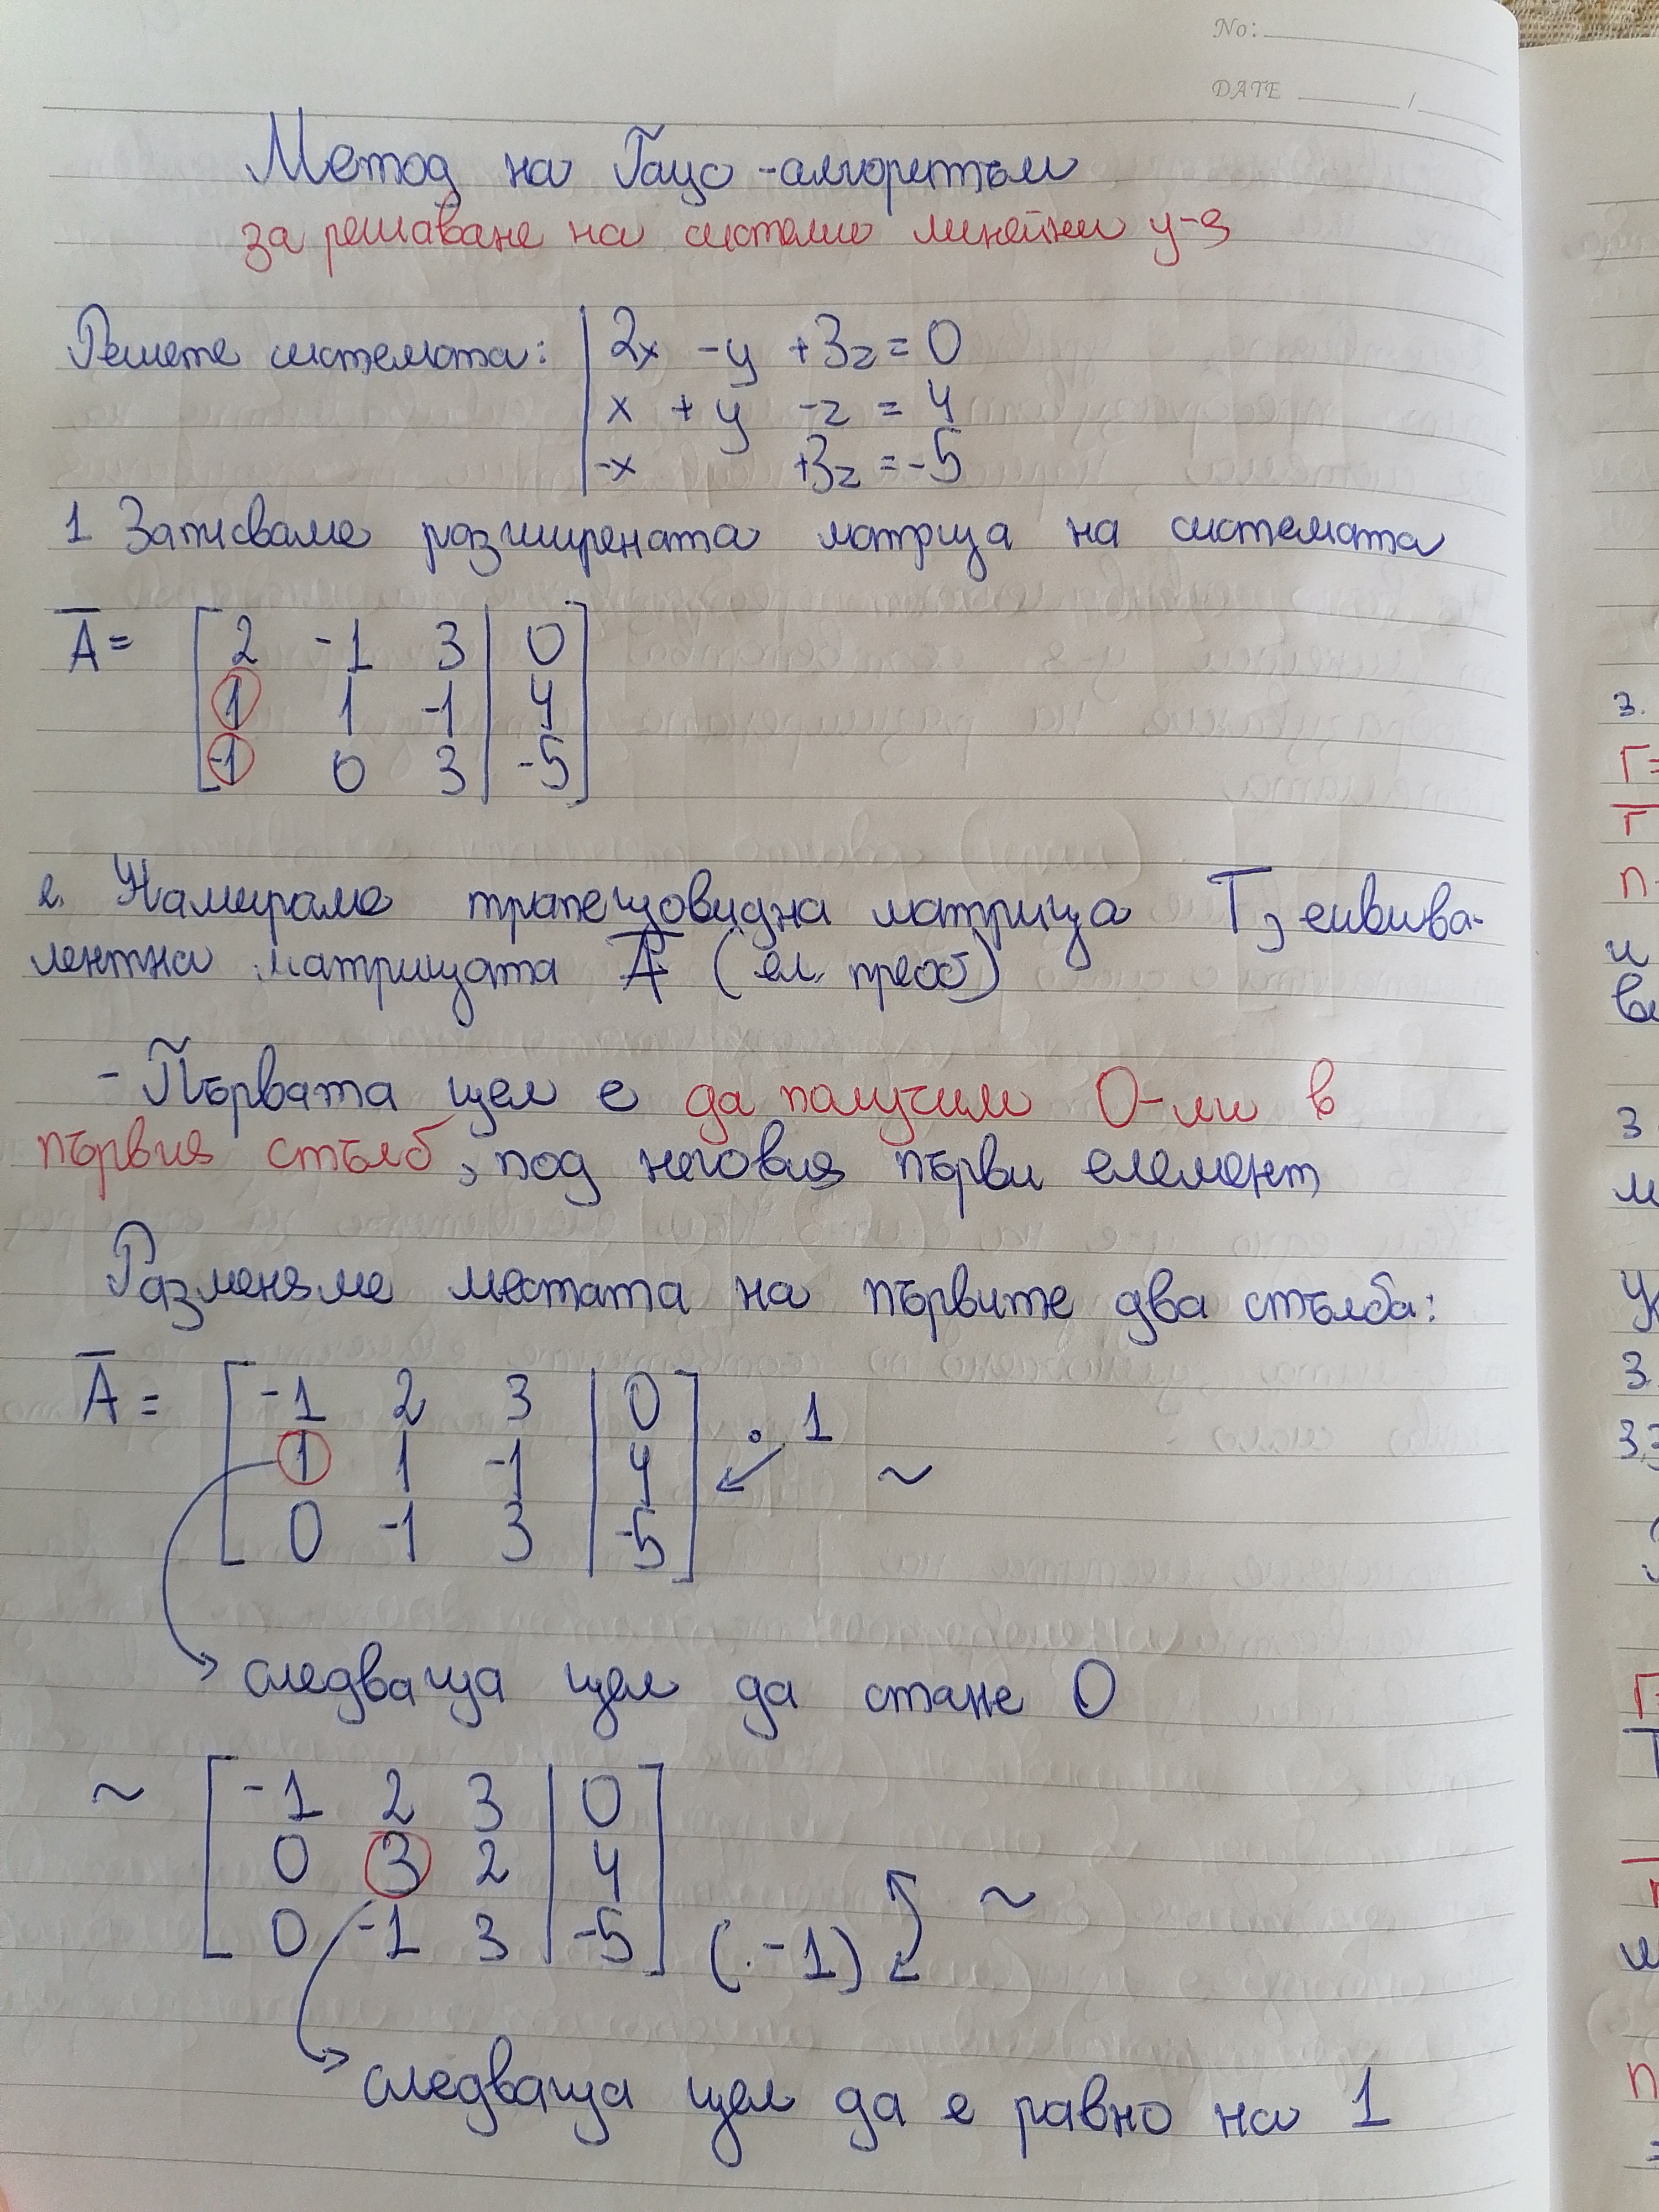 No:
DATE /
Метод на Гаус -алгоритъм
за решаване на системи линейни у-я
Решете системата: | 2x - y + 3z = 0
| x + y - z = 4
| -x +3z = -5
1 Записваме разширената матрица на системата
A̅ = [ 2 -1 3 | 0 ]
[ 1 1 -1 | 4 ]
[ -1 0 3 | -5 ]
2. Намираме трапецовидна матрица T, еквива-
лентна матрицата A̅ (ел. преоб)
- Първата цел е да получим 0-ли в
първия стълб, под неговия първи елемент
Разменяме местата на първите два стълба:
A̅ = [ -1 2 3 | 0 ] . 1
[ 1 1 -1 | 4 ] ↙ ~
[ 0 -1 3 | -5 ]
следваща цел да стане 0
~ [ -1 2 3 | 0 ]
[ 0 3 2 | 4 ] ~
[ 0 -1 3 | -5 ] (. -1)
следваща цел да е равно на 1